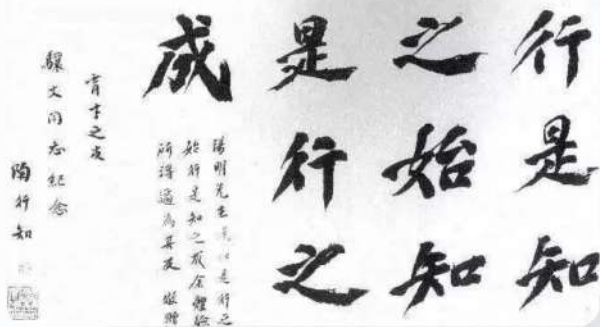 行是知
之始知
是行之
成
陽明先生知是行之
始行是知之成余體驗
所得適為其反 敬贈
育才之友
文同志紀念
陶行知